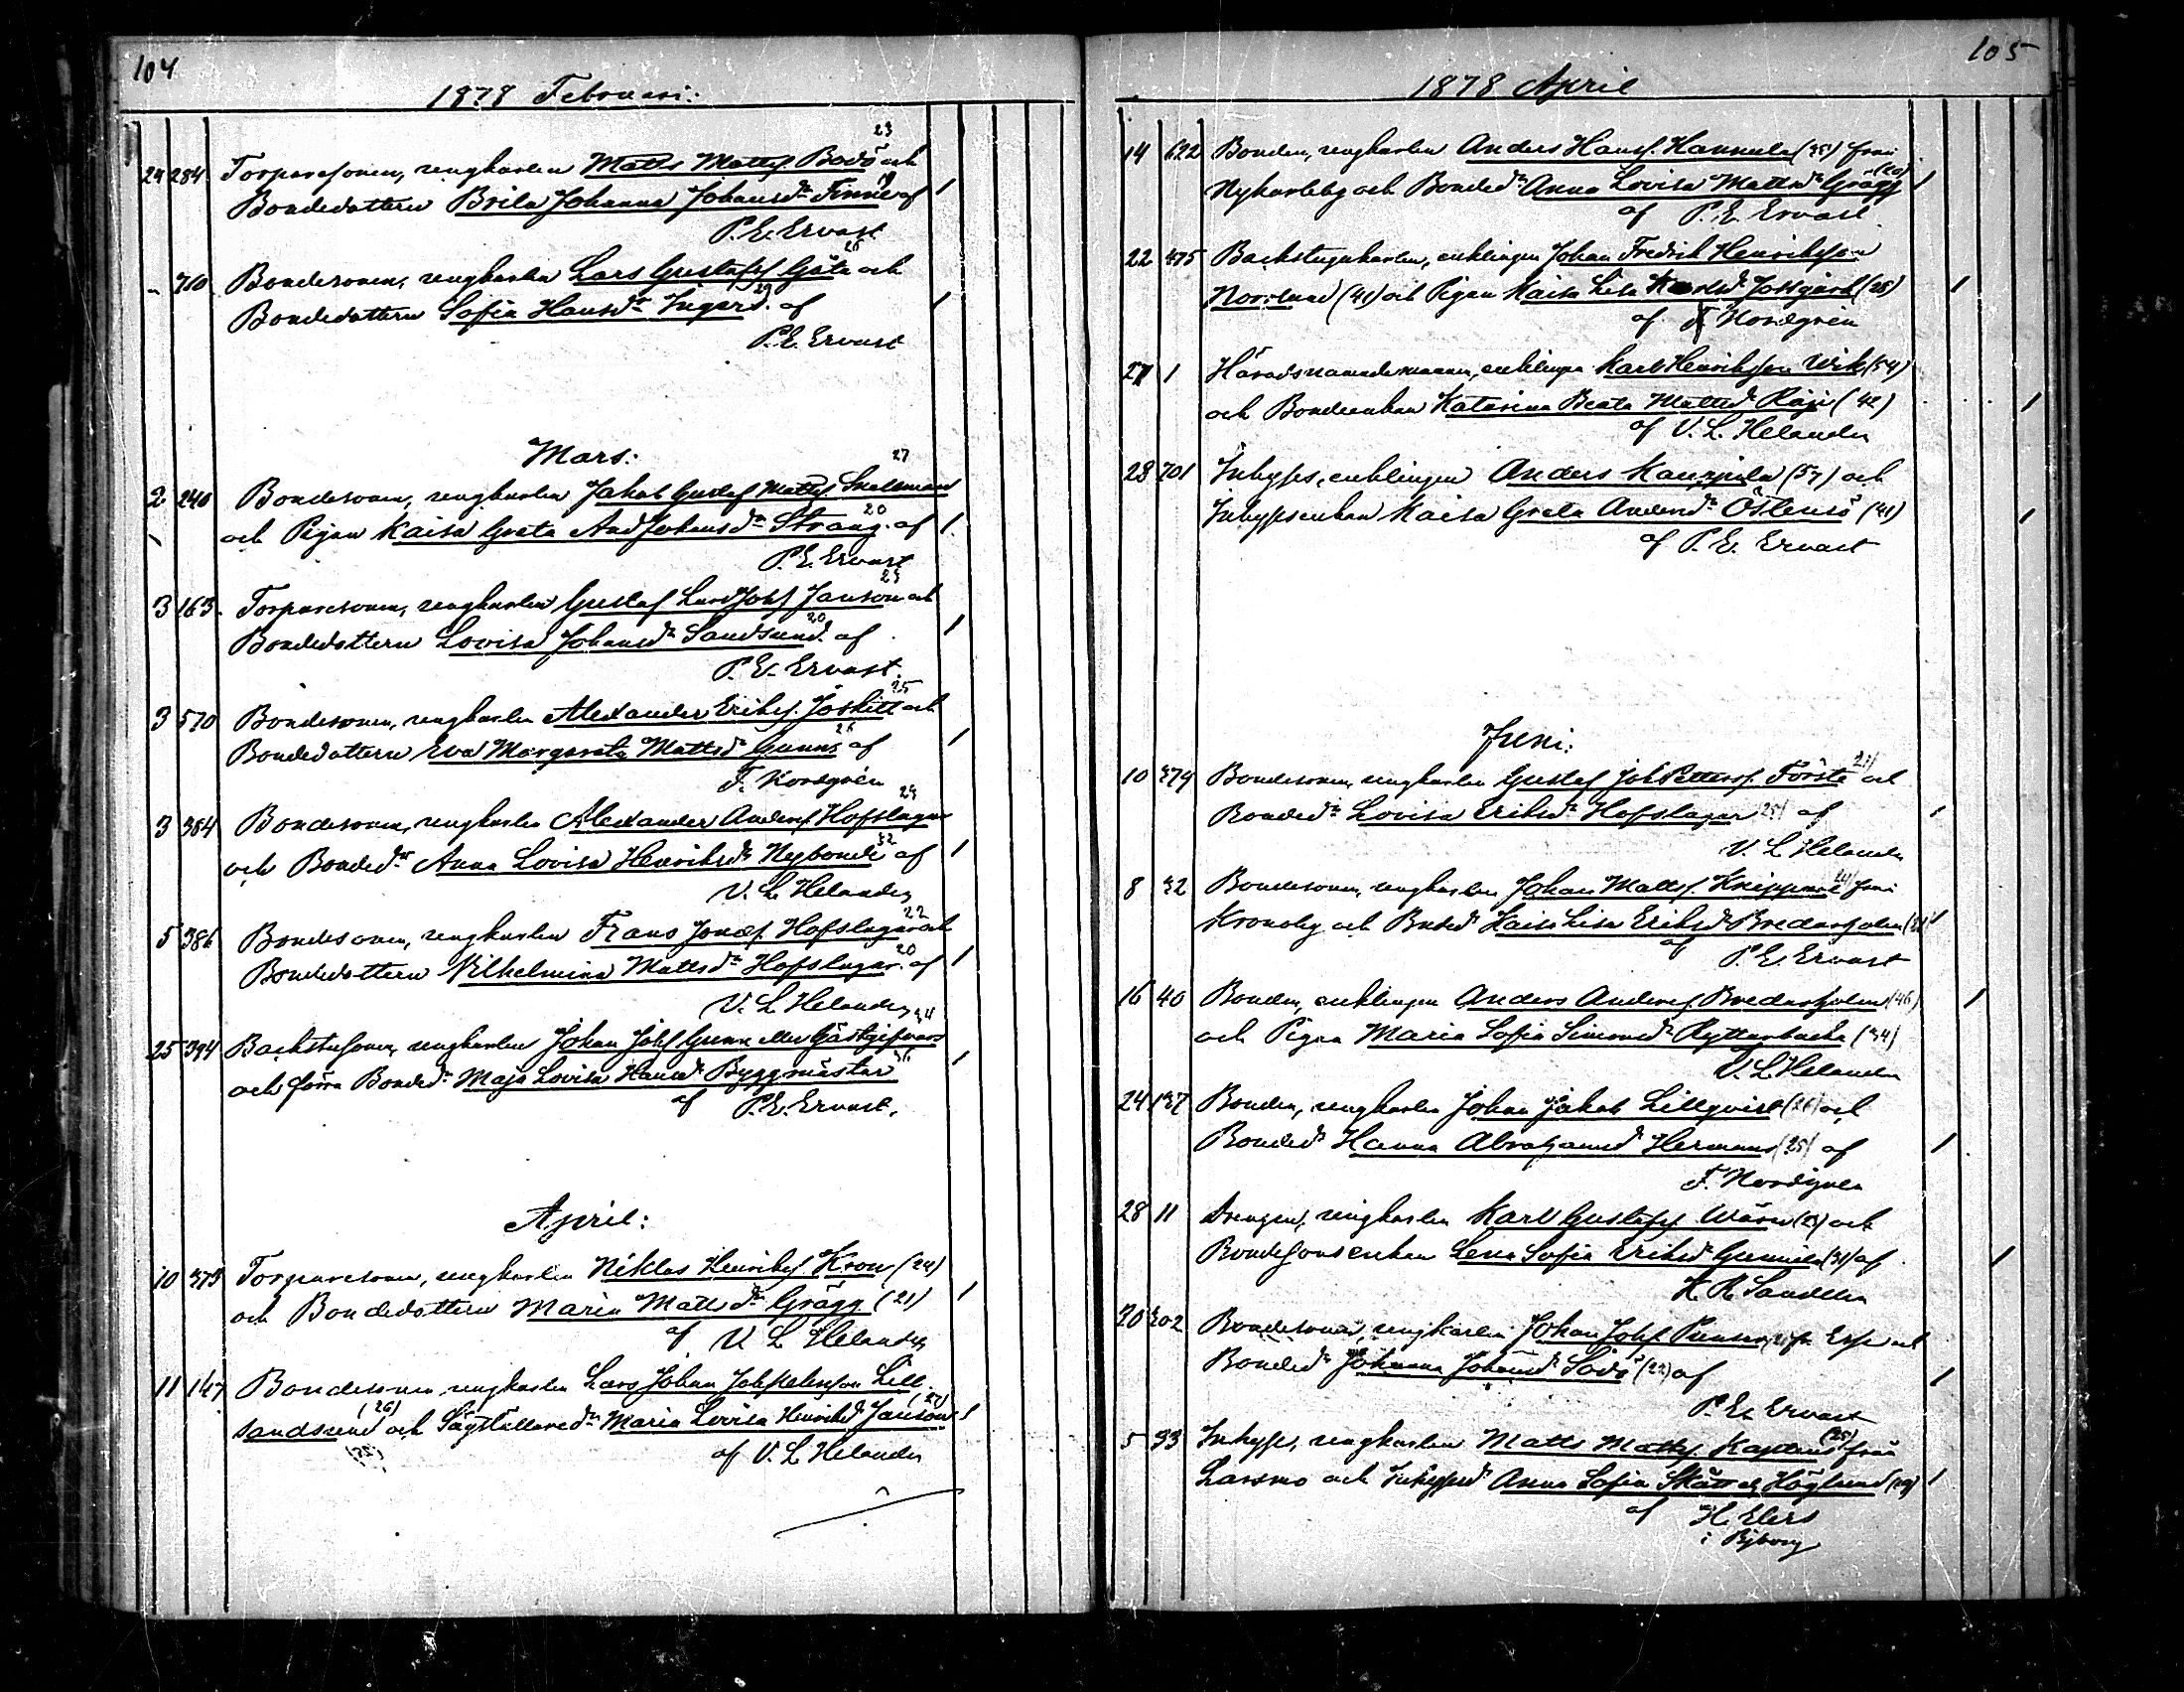 104
1878 Februari:
23
24 284 Torparesonen, ungkarlen Matts Mattss. Bodö och
19
Bondedottern Brita Johanna Johansdr Finne af
P. E. Ervast
26
" 710 Bondesonen, ungkarlen Lars Gustafss Göta och
29
Bondedottern Sofia Hansdr Ingerd. af
P. E. Ervast
Mars:
27
2 240 Bondesonen, ungkarlen Jakob Gustaf Mattss. Snellman
20
och Pigan Kaisa Greta And Johansdr Strang. af
P. E. Ervast
23
3 163. Torparesonen, ungkarlen Gustaf Lars Johss Janson och
20
Bondedottern Lovisa Johansdr Sandsund. af
P. E. Ervast.
25
3 570 Bondesonen, ungkarlen Alexander Erikss. Joskitt och
26
Bondedottern Eva Margareta Mattsdr Gunns af
F. Nordgrén
29
3 384 Bondesonen, ungkarlen Alexander Anderss Hofslagar
32
och Bondedr Anna Lovisa Henriksdr Nybonde af
V. L. Helander
22
5 386 Bondesonen, ungkarlen Frans Jonass. Hofslagar och
20
Bondedottern Vilhelmina Mattsdr Hofslagar. af
V. L. Helander
34
25 394 Backstusonen, ungkarlen Johan Johss Gunn eller Gästgifvars
36
och förra Bondedr Maja Lovisa Hansdr Byggmästar
af P. E. Ervast.
April:
10 373 Torparesonen, ungkarlen Niklas Henrikss Kron (24)
och Bondedottern Maria Mattsdr Grägg. (21)
af V. L. Helander
11 147 Bondesonen, ungkarlen Lars Johan Johss Lill
(26) (27)
sandsund och Sågställaredr Maria Lovisa Henriksdr Janson
(25)
af V. L. Helander
105
1878 April
14 622 Bonden, ungkarlen Anders Hanss. Hannula (35) från
(20)
Nykarleby och Bondedr Anna Lovisa Mattsdr Grägg
af P. E. Ervast
22 375 Backstugukarlen, enklingen Johan Fredrik Henriksson
Norrlund (41) och Pigan Kaisa Lisa Karlsdr Jossgård (28)
af F. Nordgrén
27 1 Häradsnämndemannen, enklingen Karl Henriksson Wik (54)
och Bondeenkan Katarina Beata Mattsd. Räjs (42)
af V. L. Helander
28 701 Inhyses, enklingen Anders Kauppila (57) och
Inhysesenkan Kaisa Greta Andersdr Östensö (41)
af P. E. Ervast
Juni:
10 374 Bondesonen, ungkarlen Gustaf Joh Petterss. Förste (21) och
Bondedr Lovisa Eriksdr Hofslagar (25) af
V. L. Helander
8 32 Bondesonen, ungkarlen Johan Mattss. Knippare (24) från
Kronoby och Bonded Kaisa Lisa Eriksdr Bredarholm
af P. E. Ervast
16 40 Bonden, enklingen Anders Anderss. Bredarholm (46)
och Pigan Maria Sofia Simonsdr Ryttarbacka (34)
V. L. Helander
24 137 Bonden, ungkarlen Johan Jakob Lillqvist (21) och
Bondedr Hanna Abrahamsd Hermans (25) af
F. Nordgrén
28 11 Drengen, ungkarlen Karl Gustafss Wärn (23) och
Bondesonsenkan Lena Sofia Eriksdr Gunnila (31) af
K. R. Sandelin
20 302 Bondesonen, ungkarlen Johan Johss Punsar fr. Esse och
Bondedr Johanna Johansdr Sodö (22) af
P. E. Ervast
(25)
5 33 Inhyses, ungkarlen Matts Mattss. Kaptens från
Larsmo och Inhysesdr Anna Sofia Skått el. Höglund (19)
af H. Elers
i Björneborg